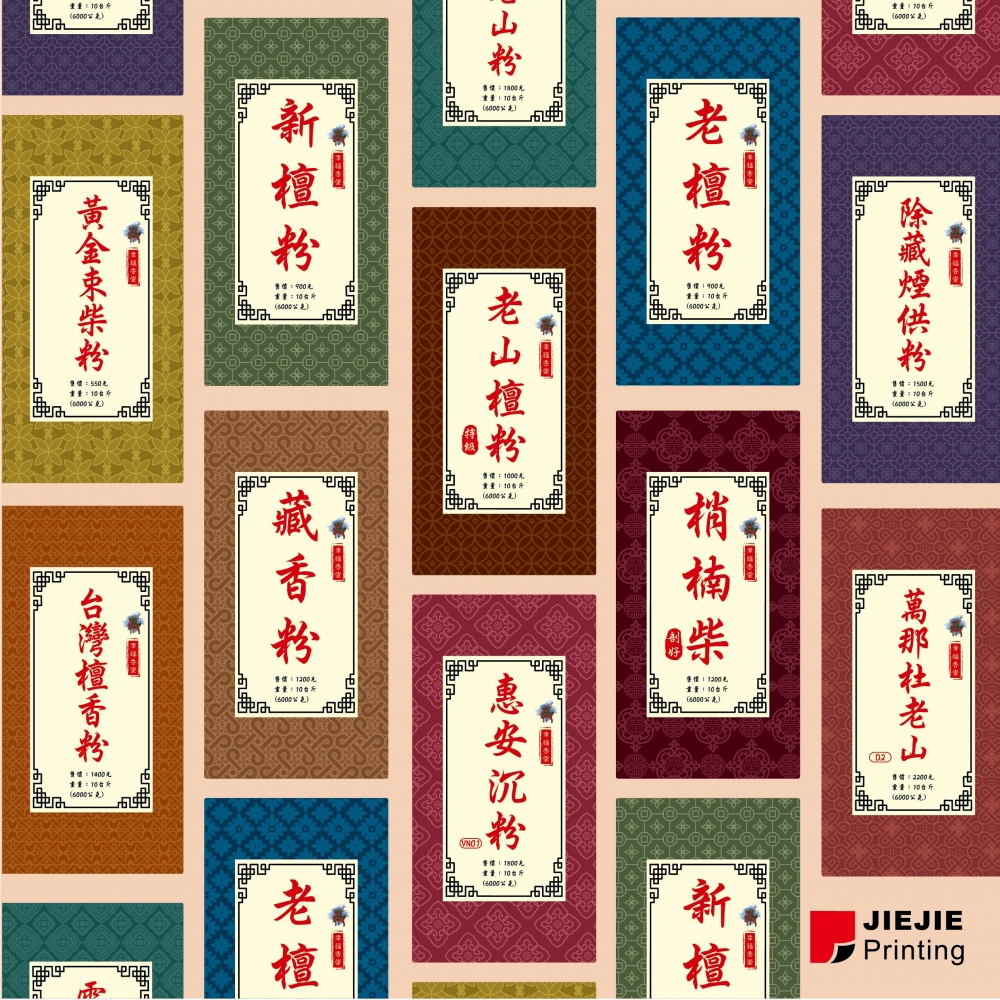 重量：10台斤
(6000公克)
黃金束柴粉
幸福香堂
售價：550元
重量：10台斤
(6000公克)
台灣檀香粉
幸福香堂
售價：1400元
重量：10台斤
(6000公克)
新檀粉
幸福香堂
售價：900元
重量：10台斤
(6000公克)
藏香粉
幸福香堂
售價：1200元
重量：10台斤
(6000公克)
老檀
幸福香堂
山粉
售價：1800元
重量：10台斤
(6000公克)
老山檀粉
特級
幸福香堂
售價：1000元
重量：10台斤
(6000公克)
惠安沉粉
VN01
幸福香堂
售價：1800元
重量：10台斤
(6000公克)
老檀粉
幸福香堂
售價：900元
重量：10台斤
(6000公克)
梢楠柴
剖好
幸福香堂
售價：1200元
重量：10台斤
(6000公克)
新檀
幸福香堂
(6000公克)
除藏煙供粉
幸福香堂
售價：1500元
重量：10台斤
(6000公克)
萬那杜老山
D2
幸福香堂
售價：2200元
重量：10台斤
(6000公克)
JIEJIE
Printing